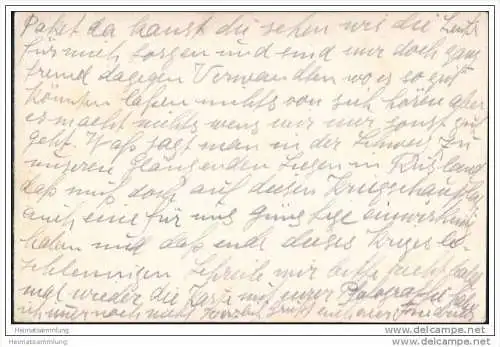 Paket da kanst du sehen wie die Leute
für mich sorgen und sind mir doch ganz
fremd dagegen Verwandten wo es so gut
könnten lassen nichts von sich hören aber
es macht nichts wens mir nur sonst gut
geht. Waß sagt man in der Schweiz zu
unseren Glänzenden Siegen in Rußland
daß muß doch auf diesen Kriegschauplaz
auch eine für uns günstige einwirkung
haben und daß ende dieses Kriges be-
schleunigen Schreibe mir bitte recht bald
mal wieder die Karte mit eurer Fotografie habe
ich immer noch nicht Friedrich
Heimatsammlung
Heimatsammlung
www.heimatsammlung.de